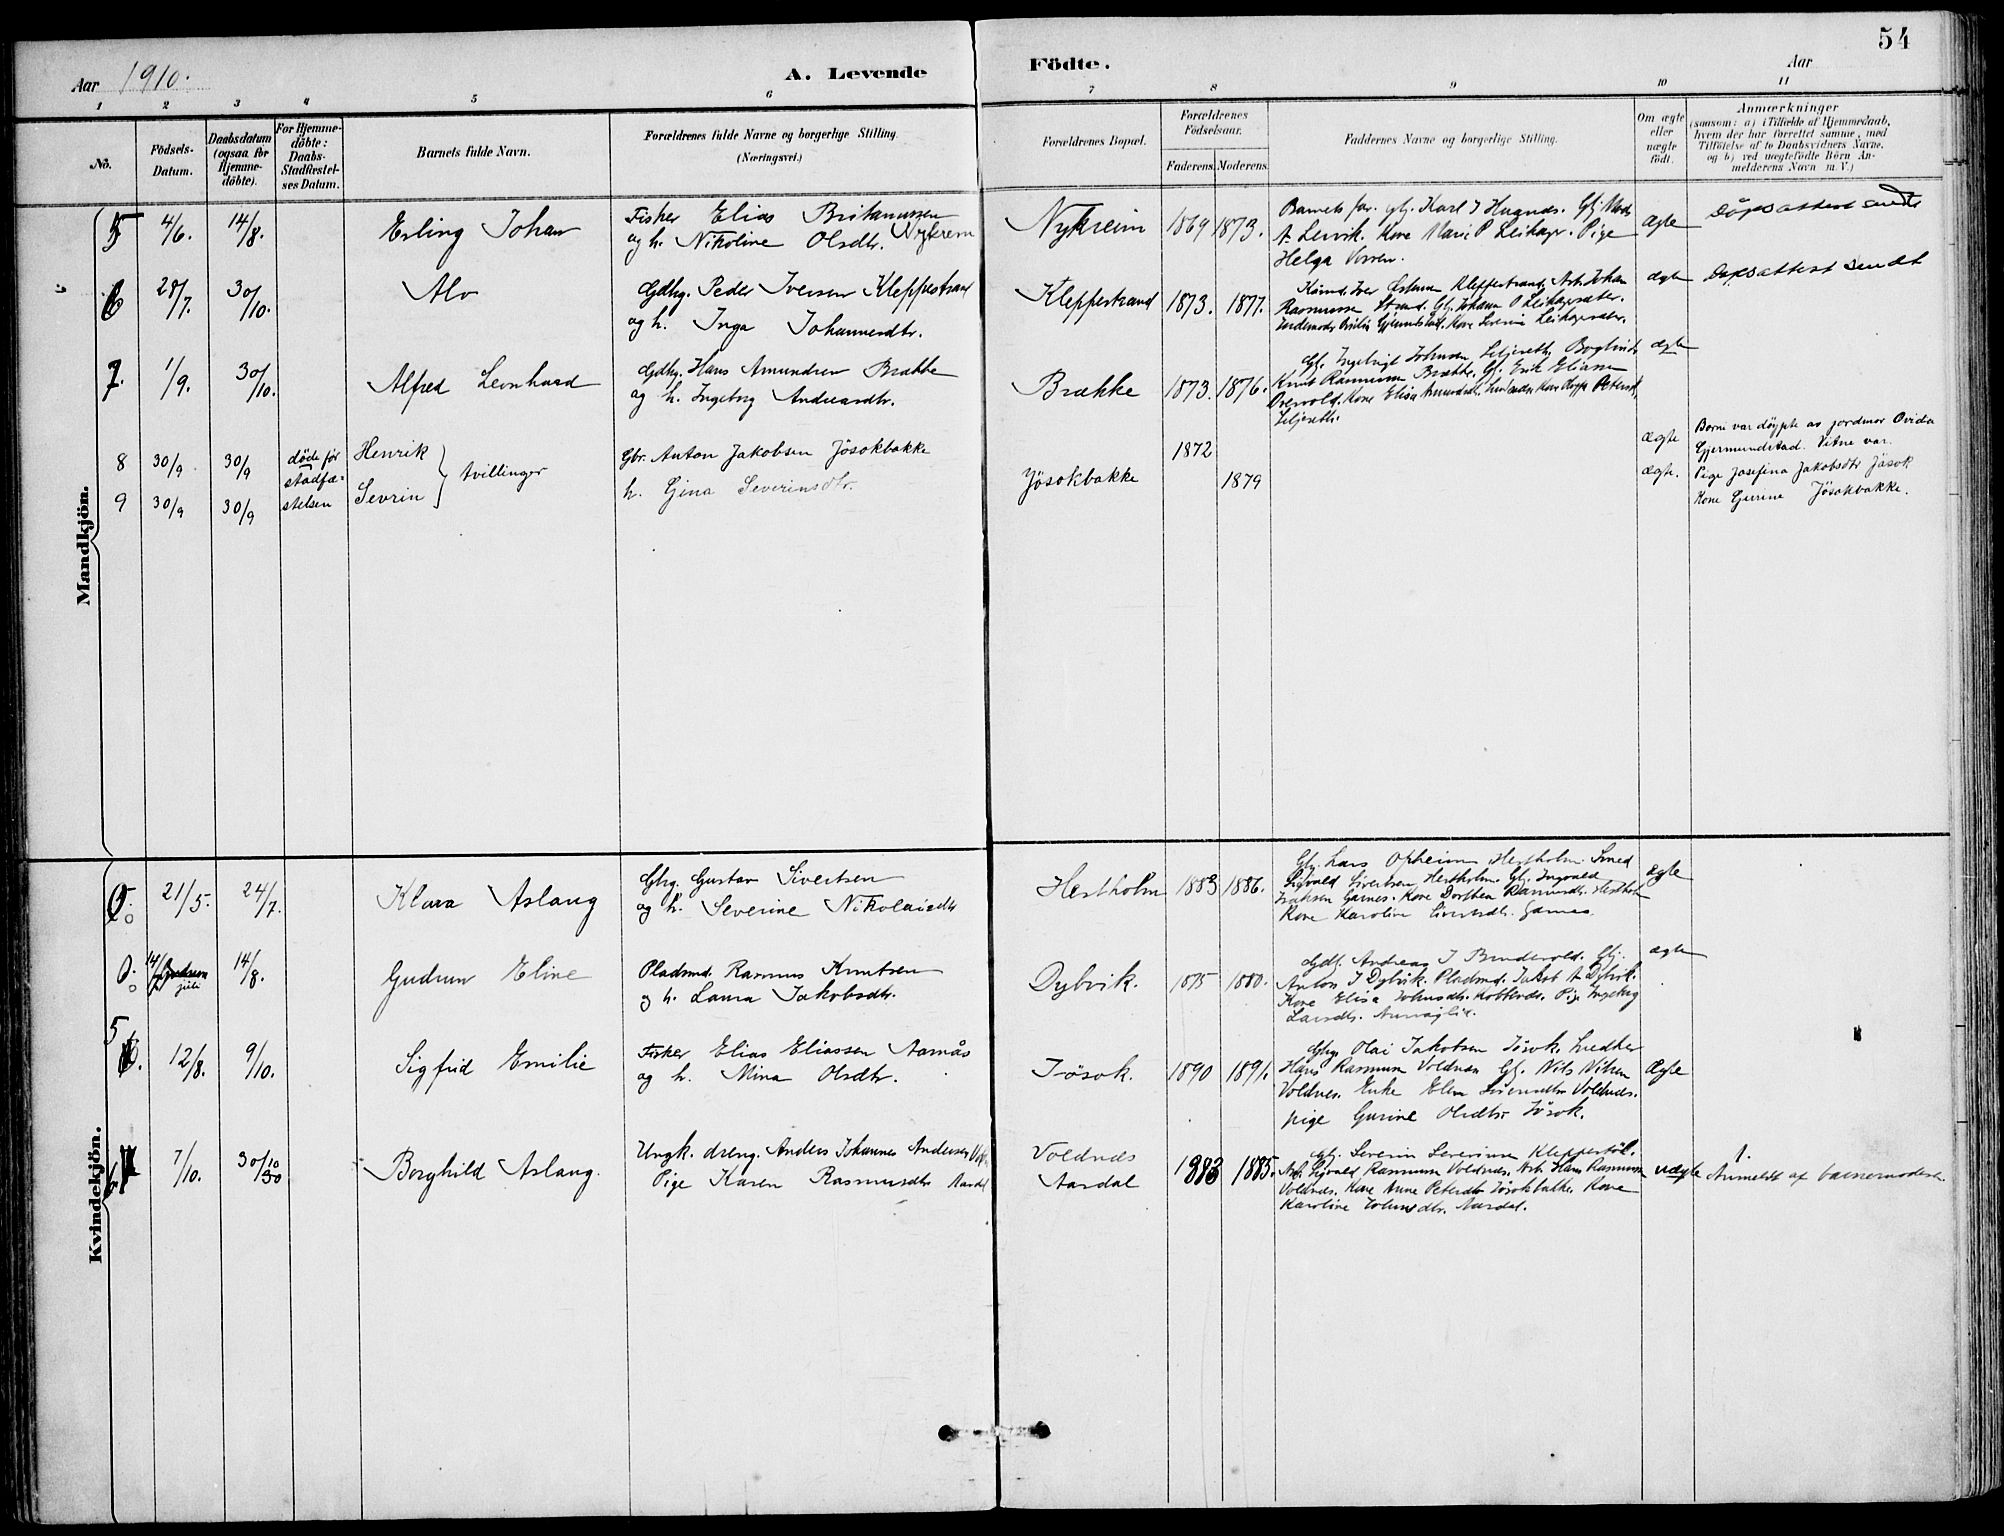 54
Aar 1910.
A. Levende Födte.
Aar
1 2 3 4 5 6 7 8 9 10 11
No.
Födsels-
Datum.
Daabsdatum
(ogsaa for
Hjemme-
döbte).
For Hjemme-
döbte:
Daabs-
Stadfæstel-
ses Datum.
Barnets fulde Navn.
Forældrenes fulde Navne og borgerlige Stilling.
(Næringsvei.)
Forældrenes Bopæl.
Forældrenes
Födselsaar.
Faderens. Moderens.
Faddernes Navne og borgerlige Stilling.
Om ægte
eller
uægte
födt.
Anmærkninger
(saasom: a) i Tilfælde af Hjemmedaab,
hvem der har forrettet samme, med
Tilföielse af to Daabsvidners Navne,
og b) ved uægtefödte Börn An-
melderens Navn m. V.)
Mandkjön.
5 4/6. 14/8. Erling Johan
Fisker Elias Britanussen
og h. Nikoline Olsdtr. Nykrem
Nykreim 1869 1873.
Barnets far. Gbj. Karl J Huands. Gbj Mads
A. Leivik. Kone Marie P Leikager. Pige
Helga Vorren.
Ægte
Döpsattest sendt
6 28/7. 30/10. Alv
Gdbg. Peder Iversen Kleppestrand
og h. Inga Johannesdtr.
Kleppestrand 1873. 1877.
Kleppestrand, Arb. Johan
Rasmussen Strand. Gbj. Johan P Leikagersæter.
Jordemoder Ovidia Gjermundstad. Kone Severine Leikagersæter.
Ægte
Döpsattest sendt
7. 1/9. 30/10. Alfred Leonhard
Gdbg. Hans Amundsen Brække
og h. Ingeborg Andreasdtr.
Brække 1873. 1876.
Knut Rasmussen Brække. Gbj. Erik Eliassen
Overvold. Kone Elisa Petersd.
Ægte
8 30/9. 30/9 döde før
stadfæ-
stelsen
Henrik
Sevrin
tvillinger
Gbr. Anton Jakobsen Jösokbakke
h. Gjina Severinsdtr.
Jösokbakke 1872 1879
ægte
ægte.
Borni var döypte av jordmor Ovidia
Gjermundstad. Vitne var.
Pige Josefina Jakobsdtr Jösok
Kone Gurine Jösokbakke.
9 30/9 30/9
Kvindekjön.
21/5. 24/7. Klara Aslaug
Gbg. Gustav Sivertsen
og h. Severine Nikolaisdtr
Hestholm 1883 1886.
Gbj. Lars Opheim Hestholm. Smed
Sigvald Sivertsen Hestholm. Gbj. Ingvald
Isaksen Garnes. Kone Dorthea Rasmusdtr. Hestholm
Kone Karoline Sivertsdtr. Garnes.
ægte
14/7
juli
14/8. Gudrun Eline
Pladsmd. Rasmus Knutsen
og h. Laura Jakobsdtr.
Dybvik. 1875 1880.
Gdbj. Andreas J Gbj.
Anton J Dybvik. Pladsmd. Jakob A Dybvik.
Kone Elisa Johnsdtr. Pige Ingeborg
Larsdtr.
ægte
5
12/8. 9/10. Sigfrid Emilie
Fisker Elias Eliassen Aarnås
og h. Mina Olsdtr.
Jösok. 1890 1891.
Gbg. Olai Jakobsen Jösok. Snedker
Hans Rasmussen Voldnæs Gbj. Nils Nilsen
Voldnes. Enke Elen Voldnæs.
pige Gurine Olsdtr Jösok.
Ægte
7/10. 30/10 Borghild Aslaug.
Ungk. dreng. Anders Johannes Andersen
Pige Karen Rasmusdtr Aardal
Voldnæs
Aardal
1883 1885.
Gbj. Severin Severinsen
Arb. Sigvald Rasmussen Voldnæs. Arb. Hans Rasmussen
Voldnæs. Kone Anne Petersdtr Jösokbakke. Kone
Karoline Johnsdtr. Aardal.
uægte
1.
Anmeldt af barnemoderen